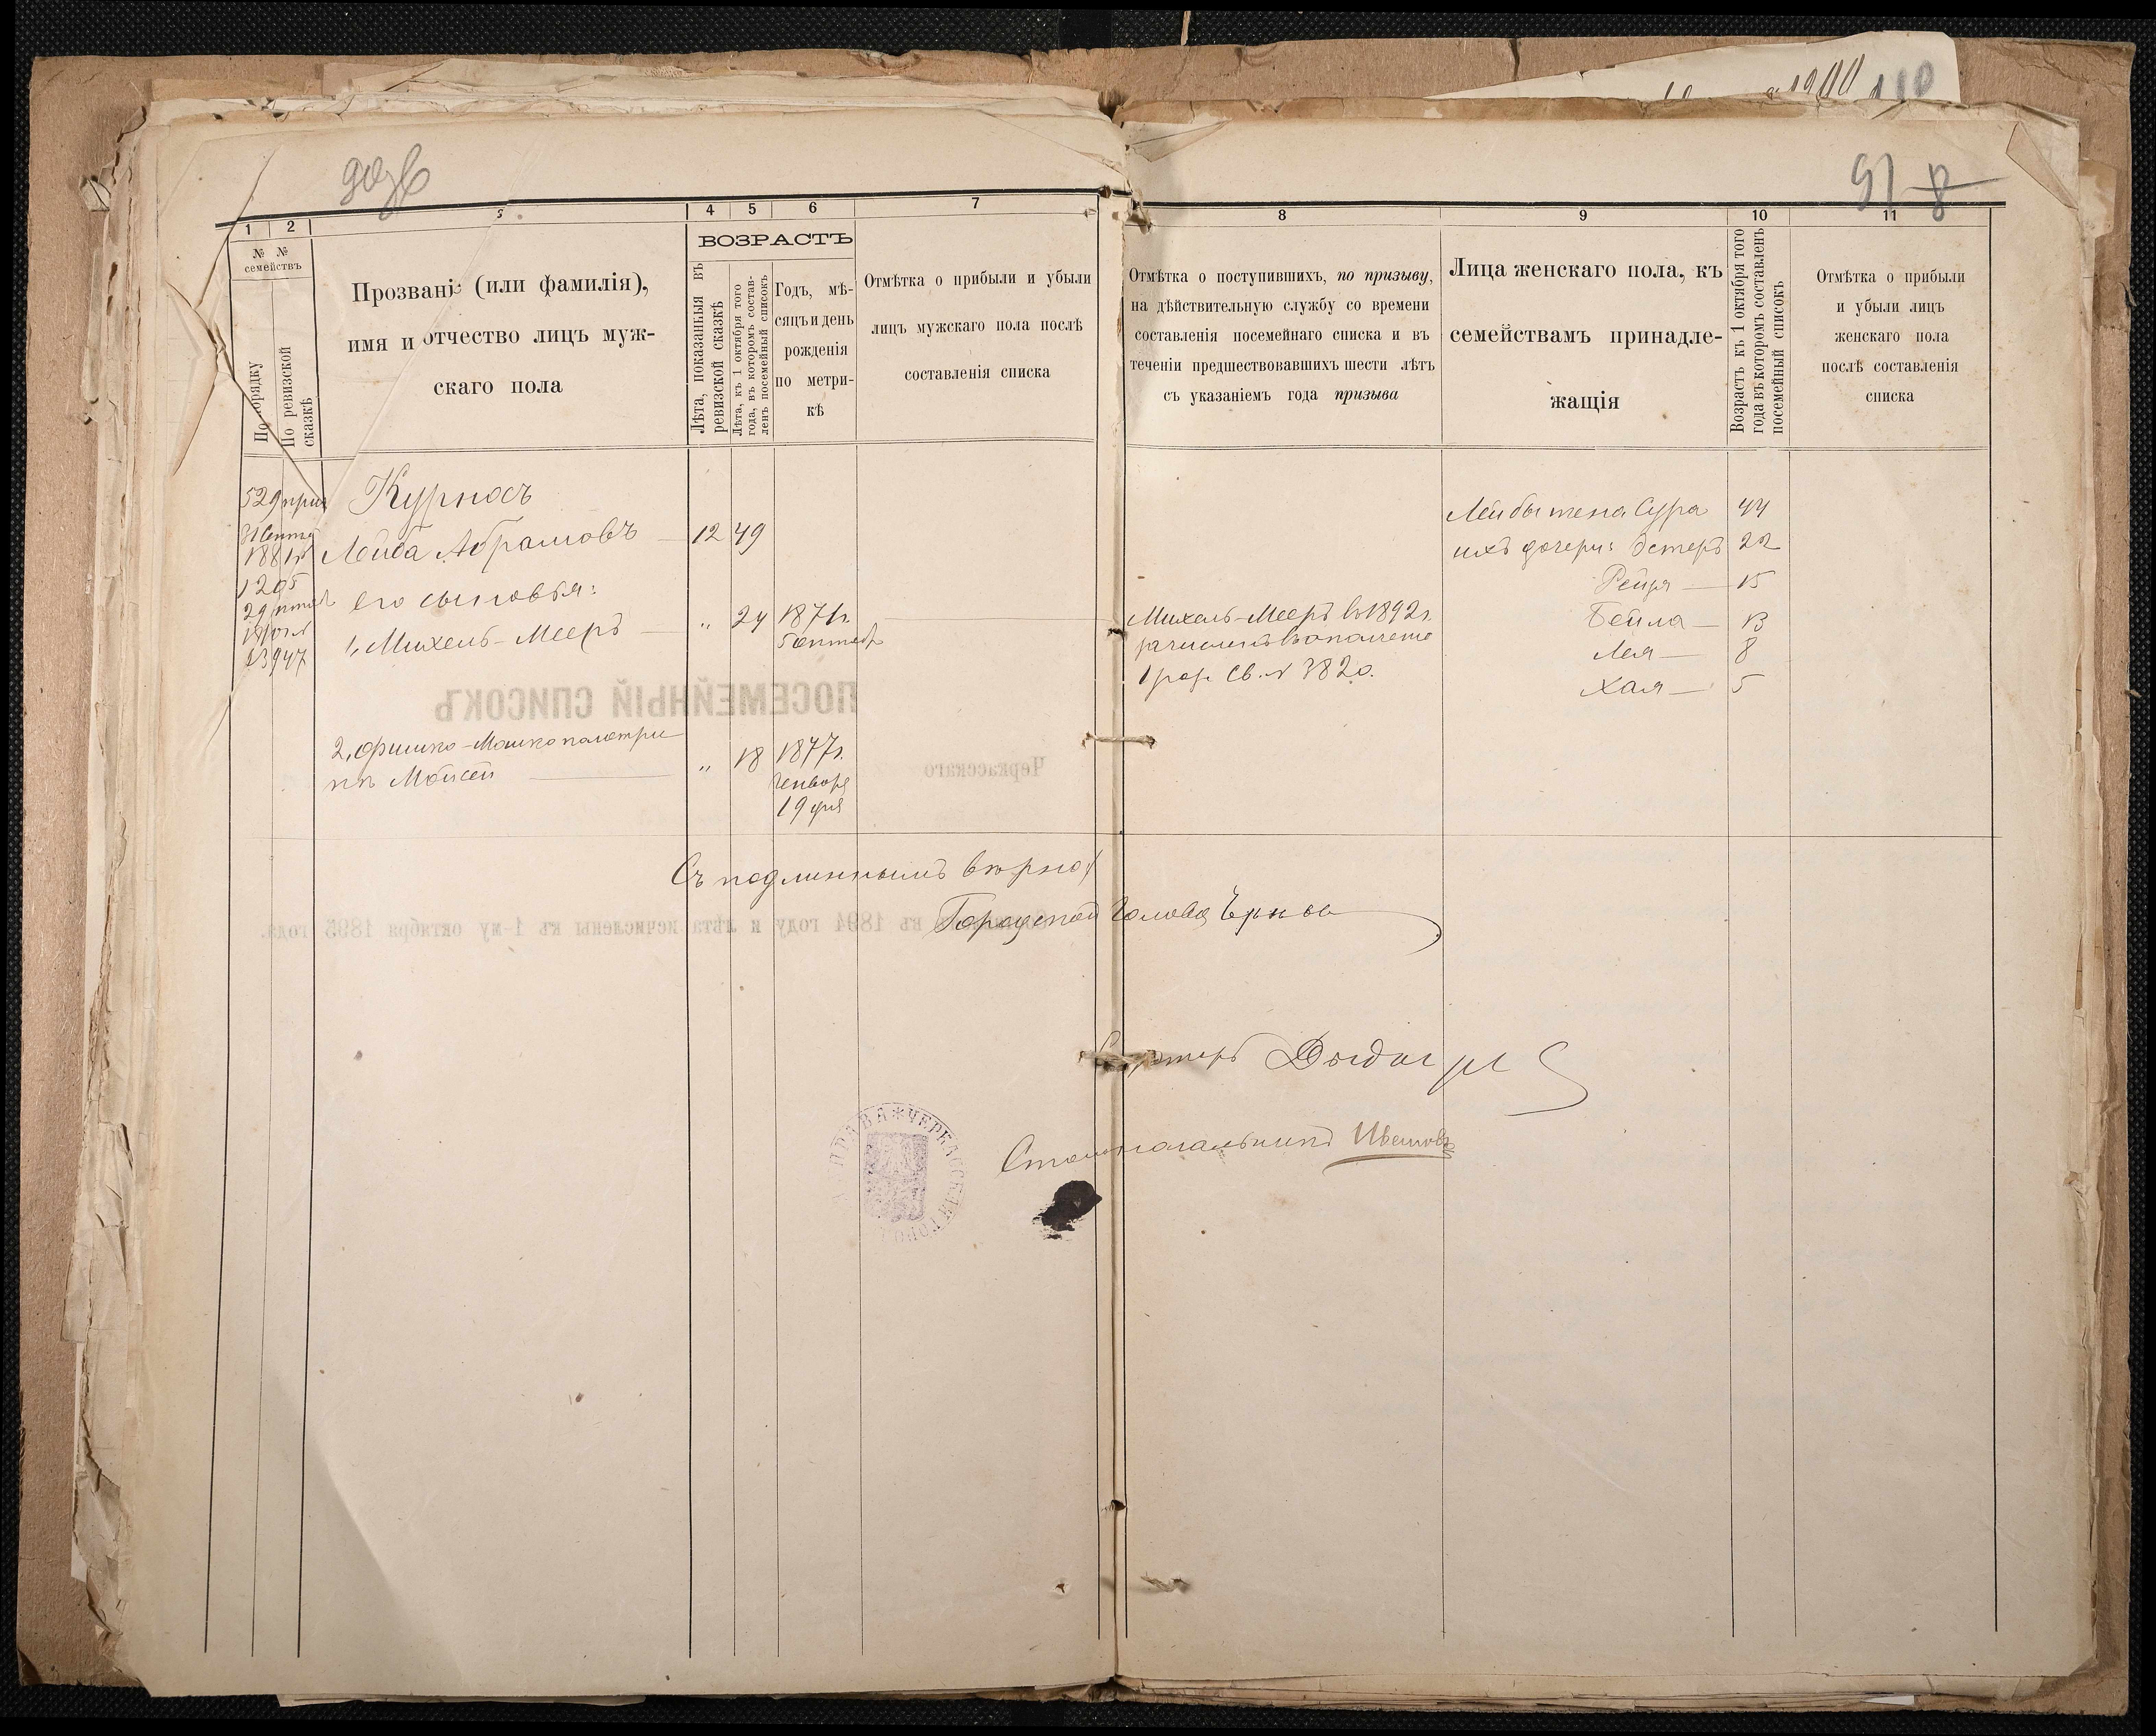 1900 110
91 8
1 2 3 4 5 6 7 8 9 10 11
№ № семействъ
По порядку
По ревизской сказкѣ
Прозваніе (или фамилія),
имя и отчество лицъ муж-
скаго пола
ВОЗРАСТЪ
Лѣта, показанныя въ
ревизской сказкѣ
Лѣта, къ 1 октября того
года, въ которомъ состав-
ленъ посемейный списокъ
Годъ, мѣ-
сяцъ и день
рожденія
по метри-
кѣ
Отмѣтка о прибыли и убыли
лицъ мужскаго пола послѣ
составленія списка
Отмѣтка о поступившихъ, по призыву,
на дѣйствительную службу со времени
составленія посемейнаго списка и въ
теченіи предшествовавшихъ шести лѣтъ
съ указаніемъ года призыва
Лица женскаго пола, къ
семействамъ принадле-
жащія
Возрастъ къ 1 октября того
года въ которомъ составленъ
посемейный списокъ
Отмѣтка о прибыли
и убыли лицъ
женскаго пола
послѣ составленія
списка
529 Курносъ
Лейба Абрамовъ 12 49
1205
его сыновья:
1, Михель-Мееръ „ 24 1871г.
13947
2, Фишко-Мошко по метри
кѣ Мойсей „ 18 1877г.
Генваря
19 дня
Михель-Мееръ въ 1892г.
зачисленъ въ ополчение
1 раз. св. № 3820.
Лейбы жена Сура 44
ихъ дочери: Эстеръ 22
Рейзя 15
Бейла 13
Лея 8
Хая 5
ПОСЕМЕЙНЫЙ СПИСОКЪ
Черкасскаго
Съ подлиннымъ вѣрно:
Городской Голова
въ 1894 году и лѣта исчислены къ 1-му октября 1895 года.
Столоначальникъ
УПРАВА * ЧЕРКАССКАЯ ГОРОД